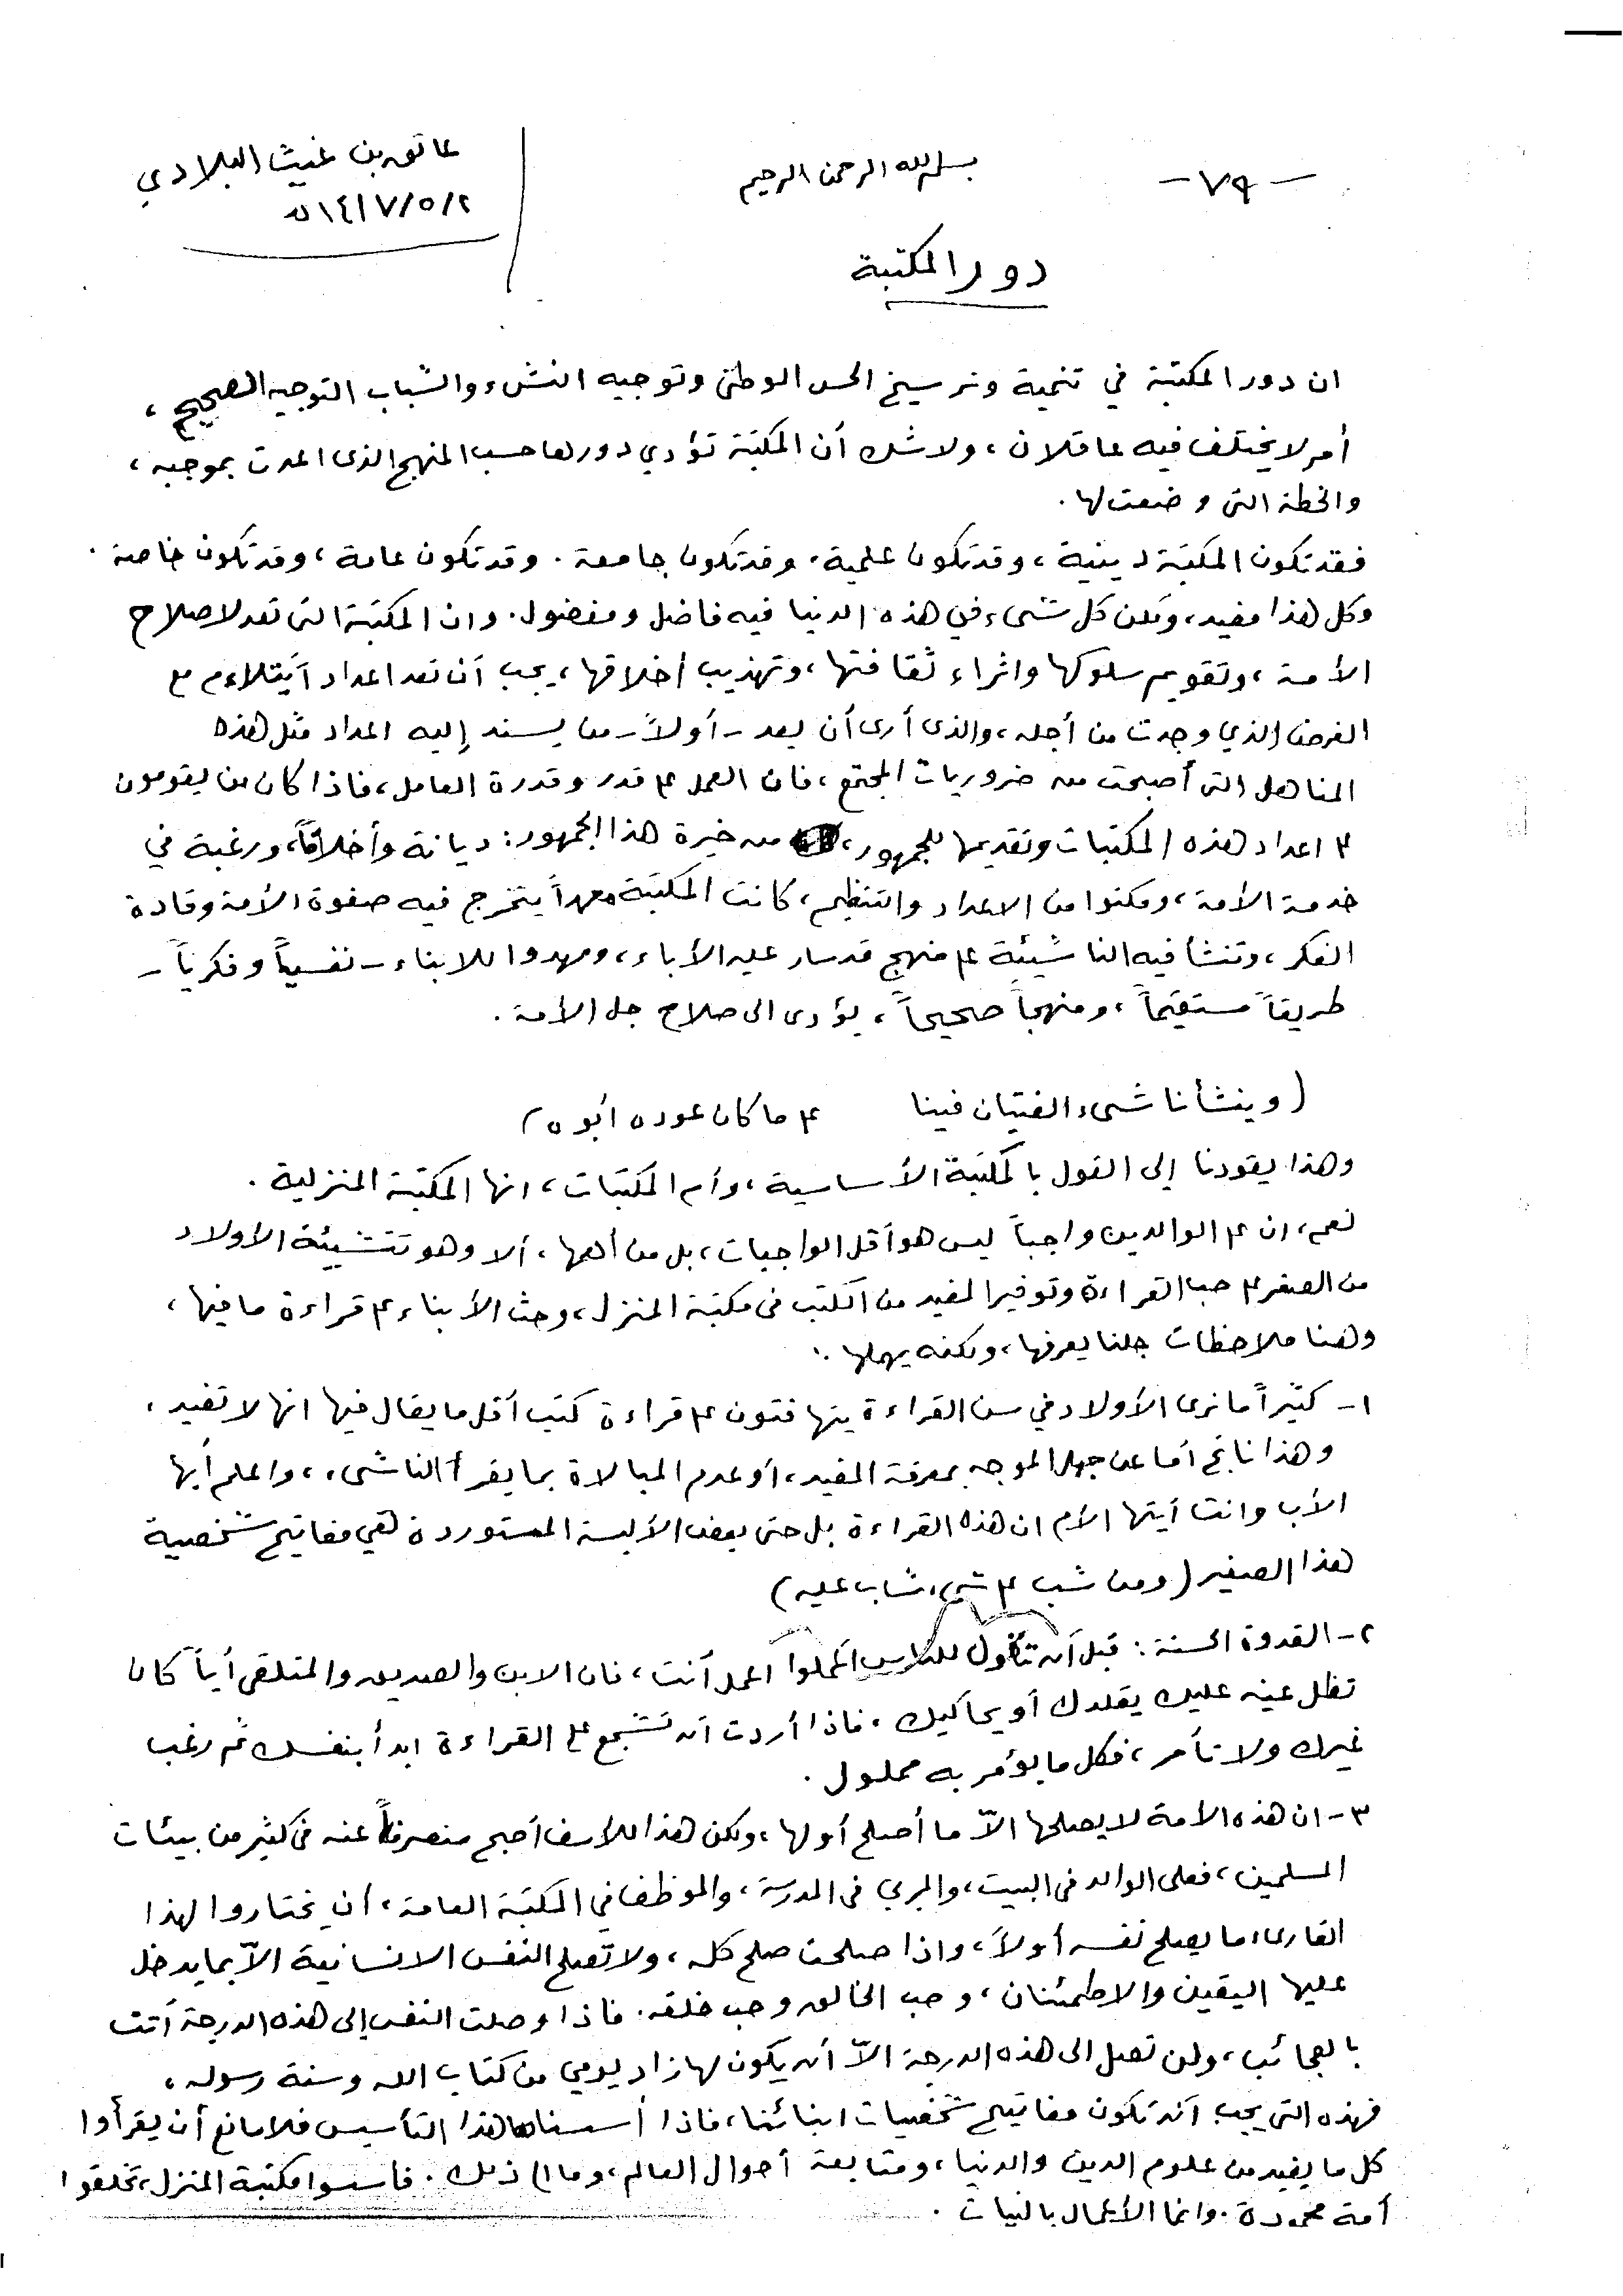 - ٧٩ -
بسم الله الرحمن الرحيم
عاتق بن غيث البلادي
١٤١٧/٥/٢ هـ
دور المكتبة
ان دور المكتبة في تنمية وترسيخ الحس الوطني وتوجيه النشء والشباب التوجيه الصحيح،
أمر لا يختلف فيه عاقلان، ولا شك أن المكتبة تؤدي دورها حسب المنهج الذى اعدت بموجبه،
والخطة التى وضعت لها.
فقد تكون المكتبة دينية، وقد تكون علمية، وقد تكون جامعة. وقد تكون عامة، وقد تكون خاصة.
وكل هذا مفيد، ولكن كل شىء في هذه الدنيا فيه فاضل ومفضول. وان المكتبة التى تعد لاصلاح
الأمة، وتقويم سلوكها واثراء ثقافتها، وتهذيب أخلاقها، يجب أن تعد اعداداً يتلاءم مع
الغرض الذي وجدت من أجله، والذى أرى أن يعد - أولاً - من يسند إليه اعداد مثل هذه
المناهل التى أصبحت من ضروريات المجتمع، فان العمل على قدر وقدرة العامل، فاذا كان من يقومون
على اعداد هذه المكتبات وتقديمها للجمهور، من خيرة هذا الجمهور: ديانة وأخلاقاً، ورغبة في
خدمة الأمة، ومكنوا من الاعداد والتنظيم، كانت المكتبة معهداً يتخرج فيه صفوة الأمة وقادة
الفكر، وتنشأ فيه الناشيئة على منهج قد سار عليه الأباء، ومهدوا للابناء - نفسياً وفكرياً -
طريقاً مستقيماً، ومنهجاً صحيحاً، يؤدى الى صلاح جل الأمة.
(وينشأ ناشىء الفتيان فينا على ما كان عوده أبوه)
وهذا يقودنا إلى القول بالمكتبة الأساسية، وأم المكتبات، انها المكتبة المنزلية.
نعم، ان على الوالدين واجباً ليس هو أقل الواجبات، بل من أهمها، ألا وهو تنشيئة الأولاد
من الصغر على حب القراءة وتوفير المفيد من الكتب فى مكتبة المنزل، وحث الأبناء على قراءة ما فيها،
وهنا ملاحظات جلنا يعرفها، ولكنه يهملها:
١- كثيراً ما نرى الأولاد في سن القراءة يتهافتون على قراءة كتب أقل ما يقال فيها انها لا تفيد،
وهذا ناتج أما عن جهل الموجه بمعرفة المفيد، أو عدم المبالاة بما يقرأ الناشىء، واعلم أيها
الأب وانت أيتها الأم ان هذه القراءة بل حتى بعض الألبسة المستوردة لهي مفاتيح شخصية
هذا الصغير (ومن شب على شىء شاب عليه)
٢- القدوة الحسنة: قبل أن تقول للناس اعملوا اعمل أنت، فان الابن والصديق والمتلقى أياً كان
تظل عينه عليك يقلدك أو يحاكيك، فاذا أردت أن تشجع على القراءة ابدأ بنفسك ثم رغب
غيرك ولا تأمر، فكل ما يؤمر به مملول.
٣- ان هذه الأمة لا يصلحها الاّ ما أصلح أولها، ولكن هذا للأسف أصبح منصرفاً عنه فى كثير من بيئات
المسلمين، فعلى الوالد فى البيت، والمربي فى المدرسة، والموظف في المكتبة العامة، أن يختاروا لهذا
القارىء ما يصلح نفسه أولاً، واذا صلحت صلح كله، ولا تصلح النفس الانسانية الاّ بما يدخل
عليها اليقين والاطمئنان، وحب الخالق وحب خلقه. فاذا وصلت النفس إلى هذه الدرجة أتت
بالعجائب، ولن تصل الى هذه الدرجة الاّ أن يكون لها زاد يومي من كتاب الله وسنة رسوله،
فهذه التي يجب أن تكون مفاتيح شخصيات ابنائنا، فاذا أسسنا هذا التأسيس فلا مانع أن يقرأوا
كل ما يفيد من علوم الدين والدنيا، ومتابعة أحوال العالم، وما الى ذلك. فأسسوا مكتبة المنزل، تخلقوا
أمة محمودة. وانما الأعمال بالنيات.